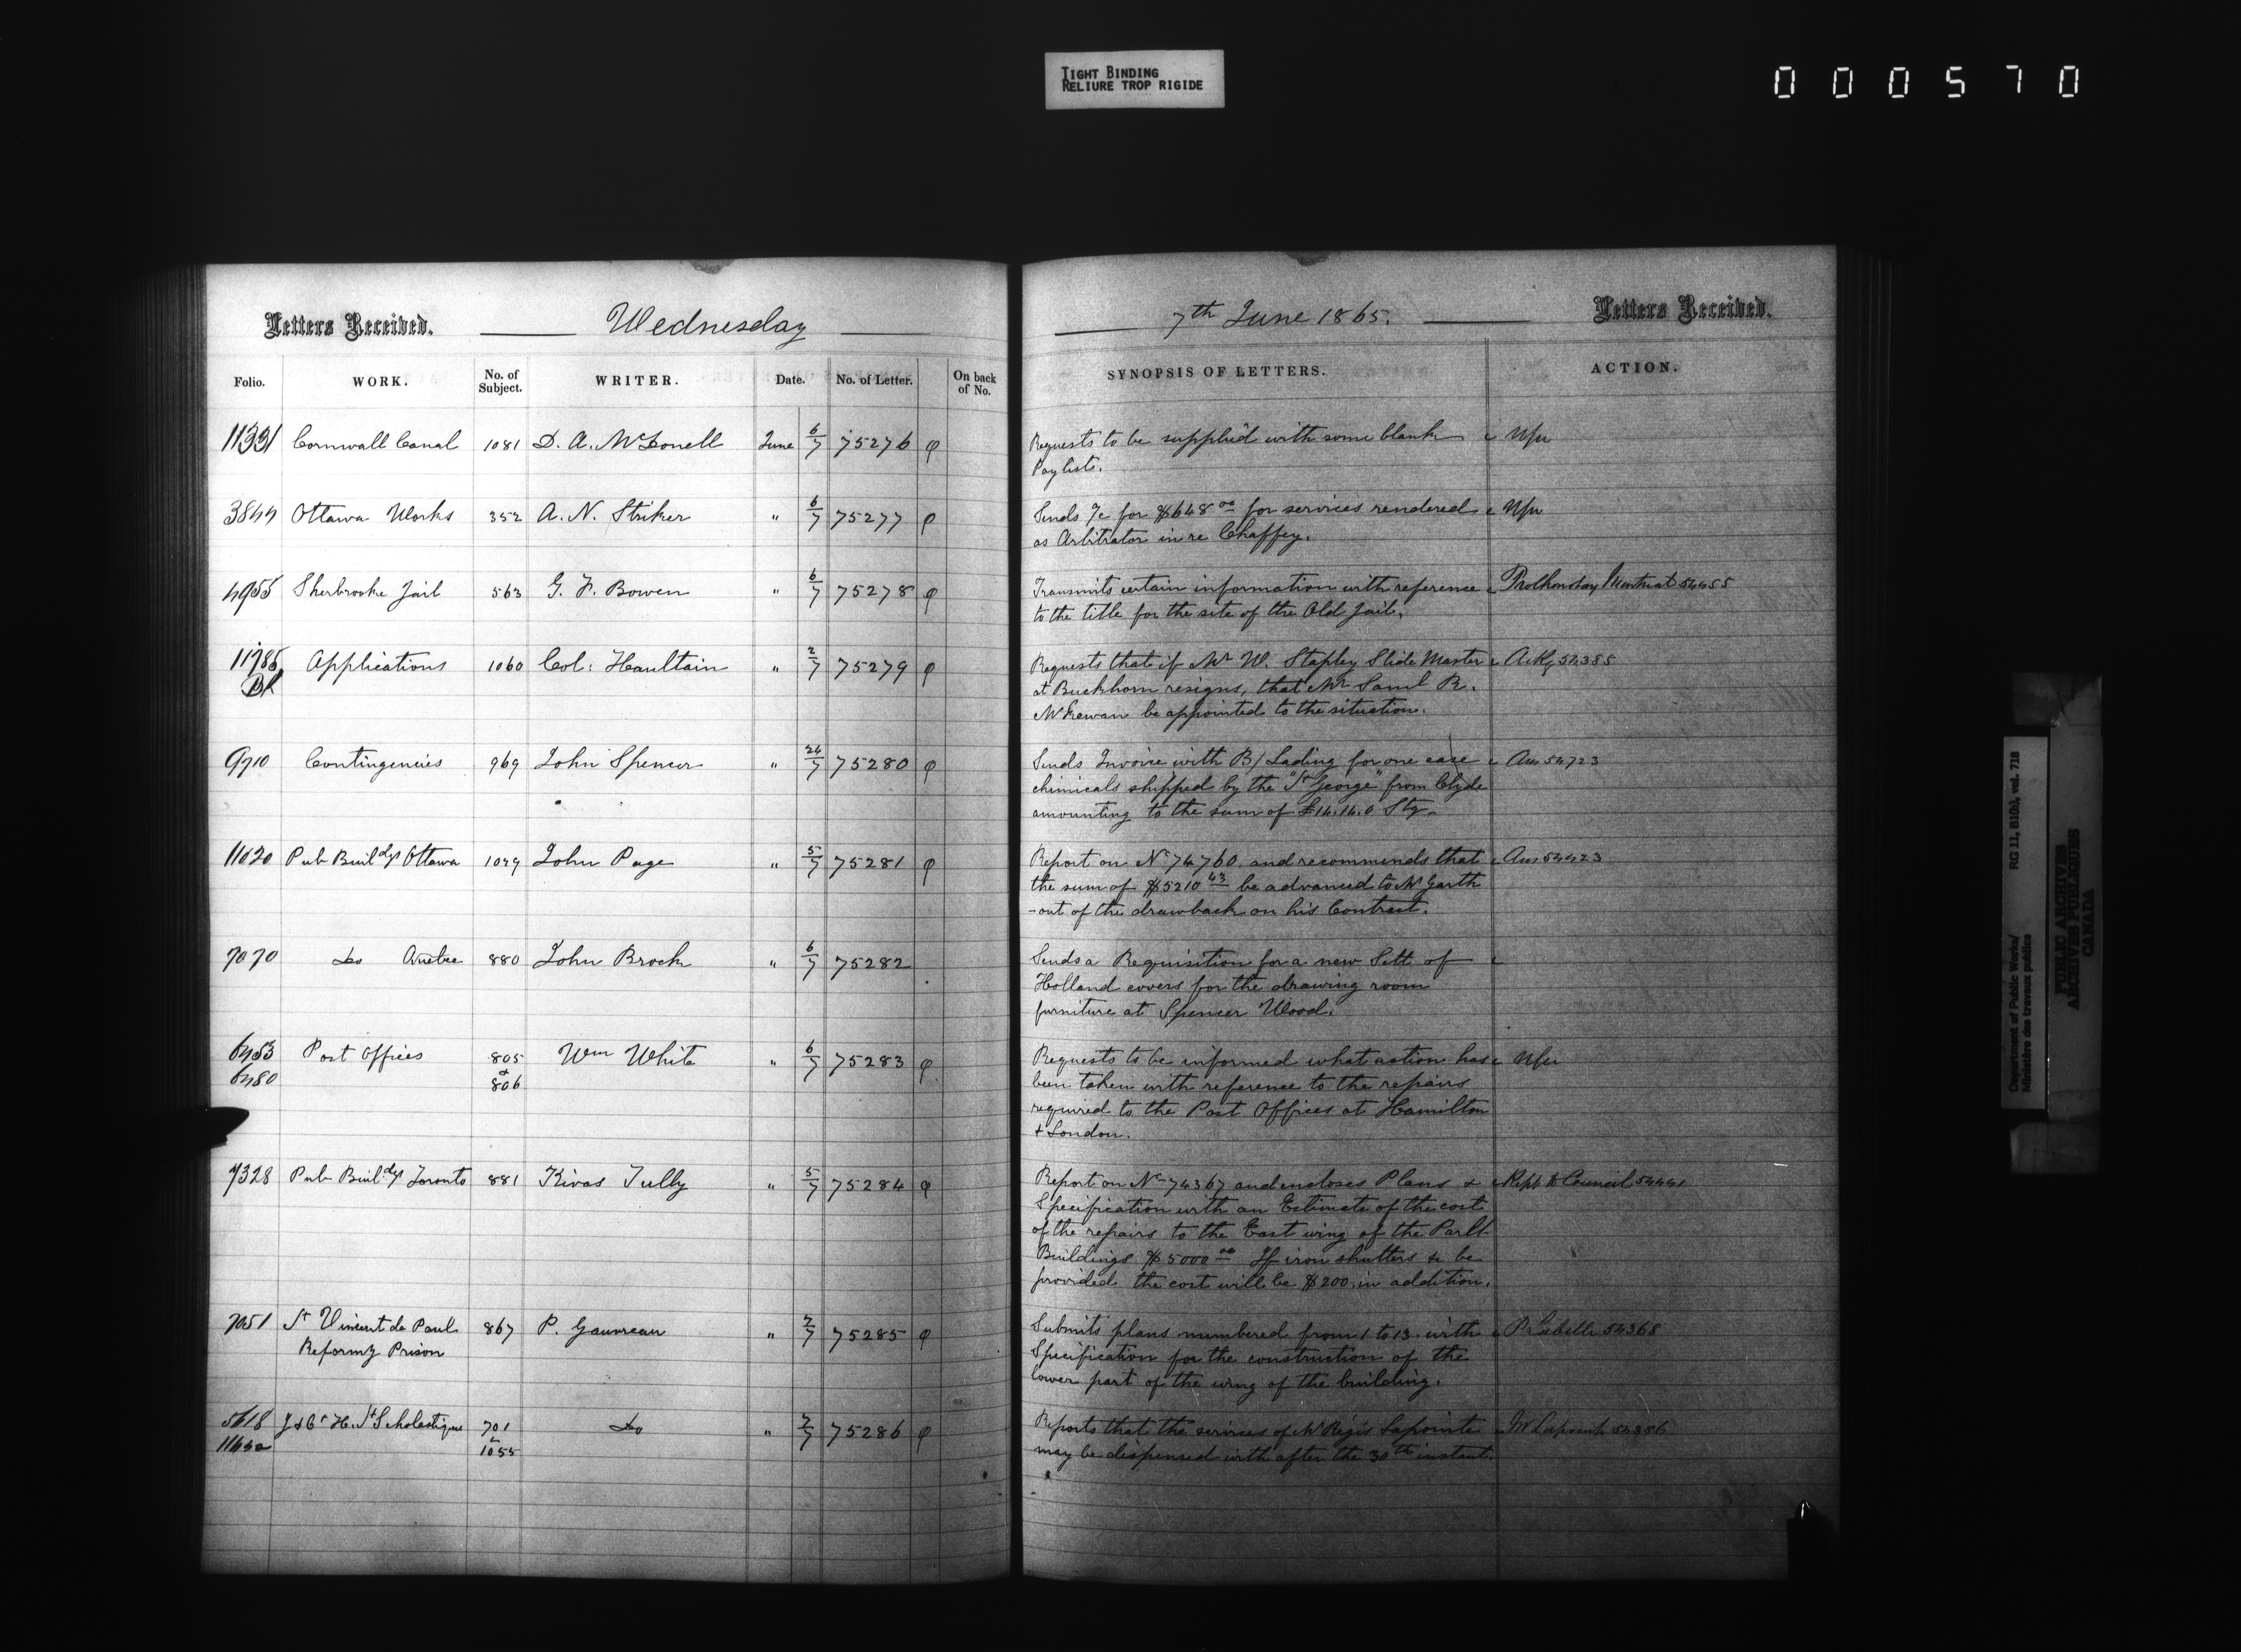 TIGHT BINDING
RELIURE TROP RIGIDE
000570
Letters Received.
Wednesday
7th June 1865.
Letters Received.
Folio. WORK. No. of Subject. WRITER. Date. No. of Letter. On back of No. SYNOPSIS OF LETTERS. ACTION.
11331 Cornwall Canal 1081 D. A. McDonell June 6/7 75276 φ Requests to be supplied with some blank Nfu
Pay lists.
3844 Ottawa Works 352 A. N. Striker " 6/7 75277 φ Sends /c for $648 00 for services rendered Nfu
as Arbitrator in re Chaffey.
4955 Sherbrooke Jail 563 G. F. Bowen " 6/7 75278 φ Transmits certain information with reference Prothonotay Montreal 54455
to the title for the site of the Old Jail.
11785 Applications 1060 Col: Haultain " 2/7 75279 φ Requests that if Mr W. Stapley Slide Master Ackg 54385
at Buckhorn resigns, that Mr Saml R.
McEewan be appointed to the situation.
9710 Contingencies 969 John Spencer " 24/7 75280 φ Sends Invoice with B/Lading for one case Ans 54723
chimicals shipped by the "St George" from Clyde
amounting to the sum of £14.14.0 Stg.
11020 Pub Buildgs Ottawa 1049 John Page " 5/7 75281 φ Report on No 74760. and recommends that Ans 54423
the sum of $5210 43 be advanced to Mr Garth
- out of the drawback on his Contract.
7070 Do Quebec 880 John Brock " 6/7 75282 Sends a Requisition for a new Sett of
Holland covers for the drawing room
furniture at Spencer Wood.
6453 Post Offices 805 Wm White " 6/7 75283 φ Requests to be informed what action has Nfu
6480 & 806 been taken with reference to the repairs
required to the Post Offices at Hamilton
+ London.
7328 Pub Buildgs Toronto 881 Kivas Tully " 5/7 75284 φ Report on No 74367 and encloses Plans & Rept to Council 54441
Specification with an Estimate of the cost
of the repairs to the East wing of the Parlt
Buildings $5000 00 If iron shutters be
provided the cost will be $200. in addition.
7051 St Vincent de Paul 867 P. Gauvreau " 2/7 75285 φ Submits plans numbered from 1 to 13. with P. Labelle 54368
Reformy Prison Specification for the construction of the
lower part of the wing of the building.
5618 J & Ct H. St Scholastique 701 Do " 2/7 75286 φ Reports that the services of Mr Regis Lapointe Mr Lapointe 54356
1055 may be dispensed with after the 30th instant.
Department of Public Works/ RG 11, B1(b), vol. 718
Ministère des travaux publics
PUBLIC ARCHIVES
ARCHIVES PUBLIQUES
CANADA